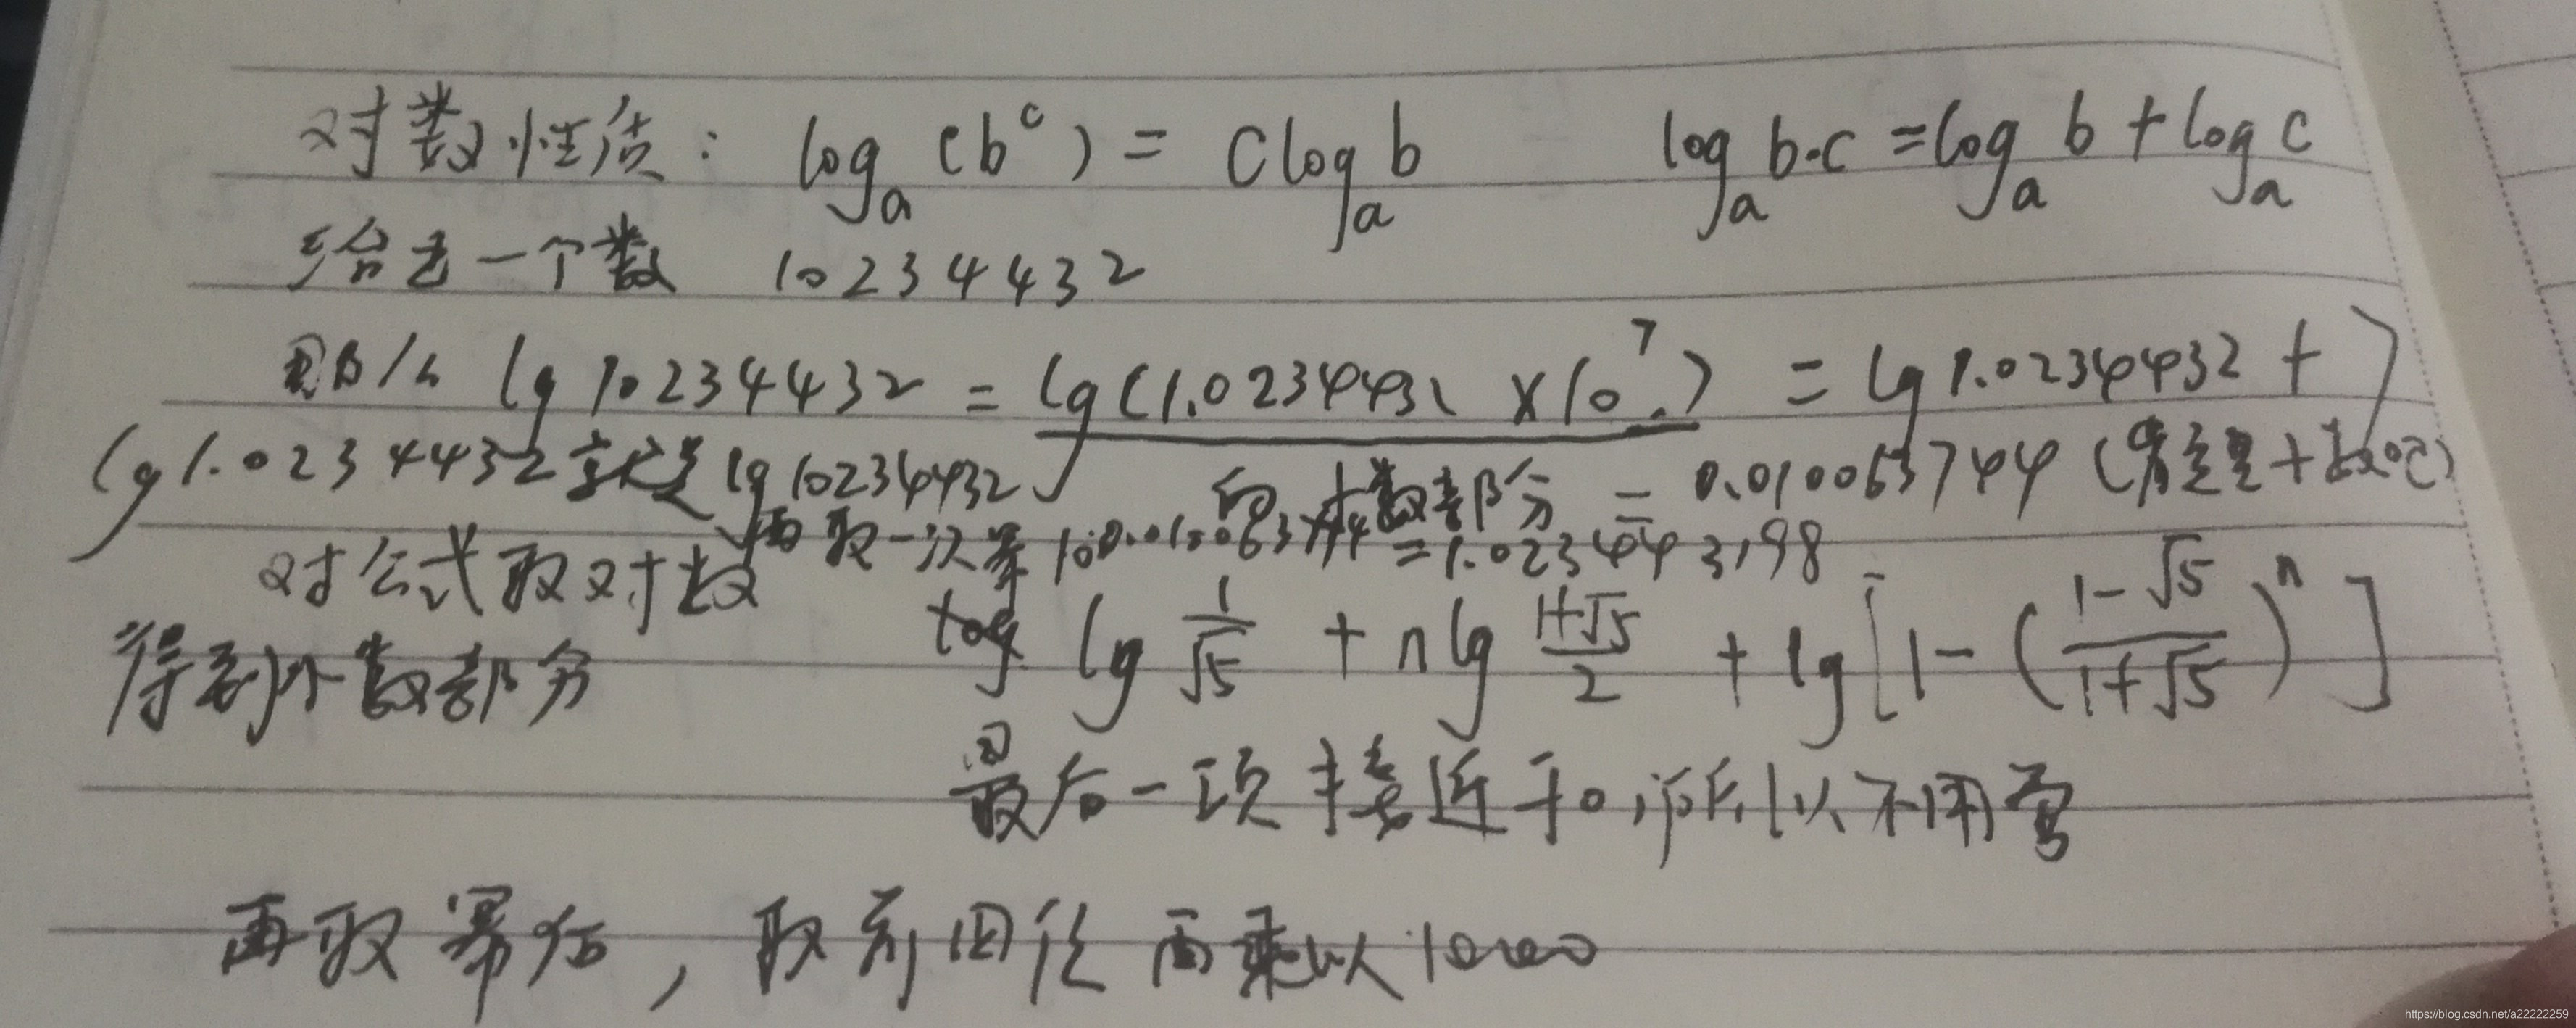 对数性质： log_a (b^c) = c log_a b   log_a b·c = log_a b + log_a c
给出一个数 10234432
lg 10234432 = lg(1.0234432 ×10^7) = lg 1.0234432 + 7
lg 1.0234432 就是 lg 10234432 的小数部分 = 0.010063744 (
再取一次幂 10^0.010063744 = 1.023443198
对公式取对数
得到小数部分 lg 1/√5 + n lg (1+√5)/2 + lg[1-((1-√5)/(1+√5))^n]
最后一项接近于0，所以不用写
再取幂后，取前四位 再乘以1000
https://blog.csdn.net/a22222259